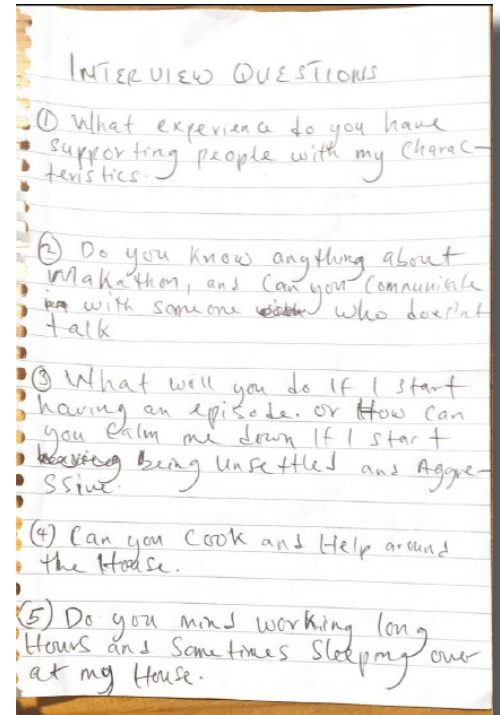 INTERVIEW QUESTIONS
① What experience do you have
supporting people with my charac-
teristics.
② Do you know anything about
Makathon, and can you communicate
with someone who does'nt
talk
③ What will you do If I start
having an episode. or How can
you Calm me down If I start
being unsettled and Aggre-
ssive.
(4) Can you cook and Help around
the House.
(5) Do you mind working long
Hours and Sometimes Sleeping over
at my House.